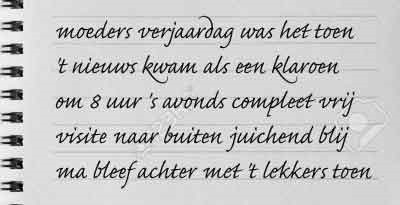 moeders verjaardag was het toen
't nieuws kwam als een klaroen
om 8 uur 's avonds compleet vrij
visite naar buiten juichend blij
ma bleef achter met 't lekkers toen